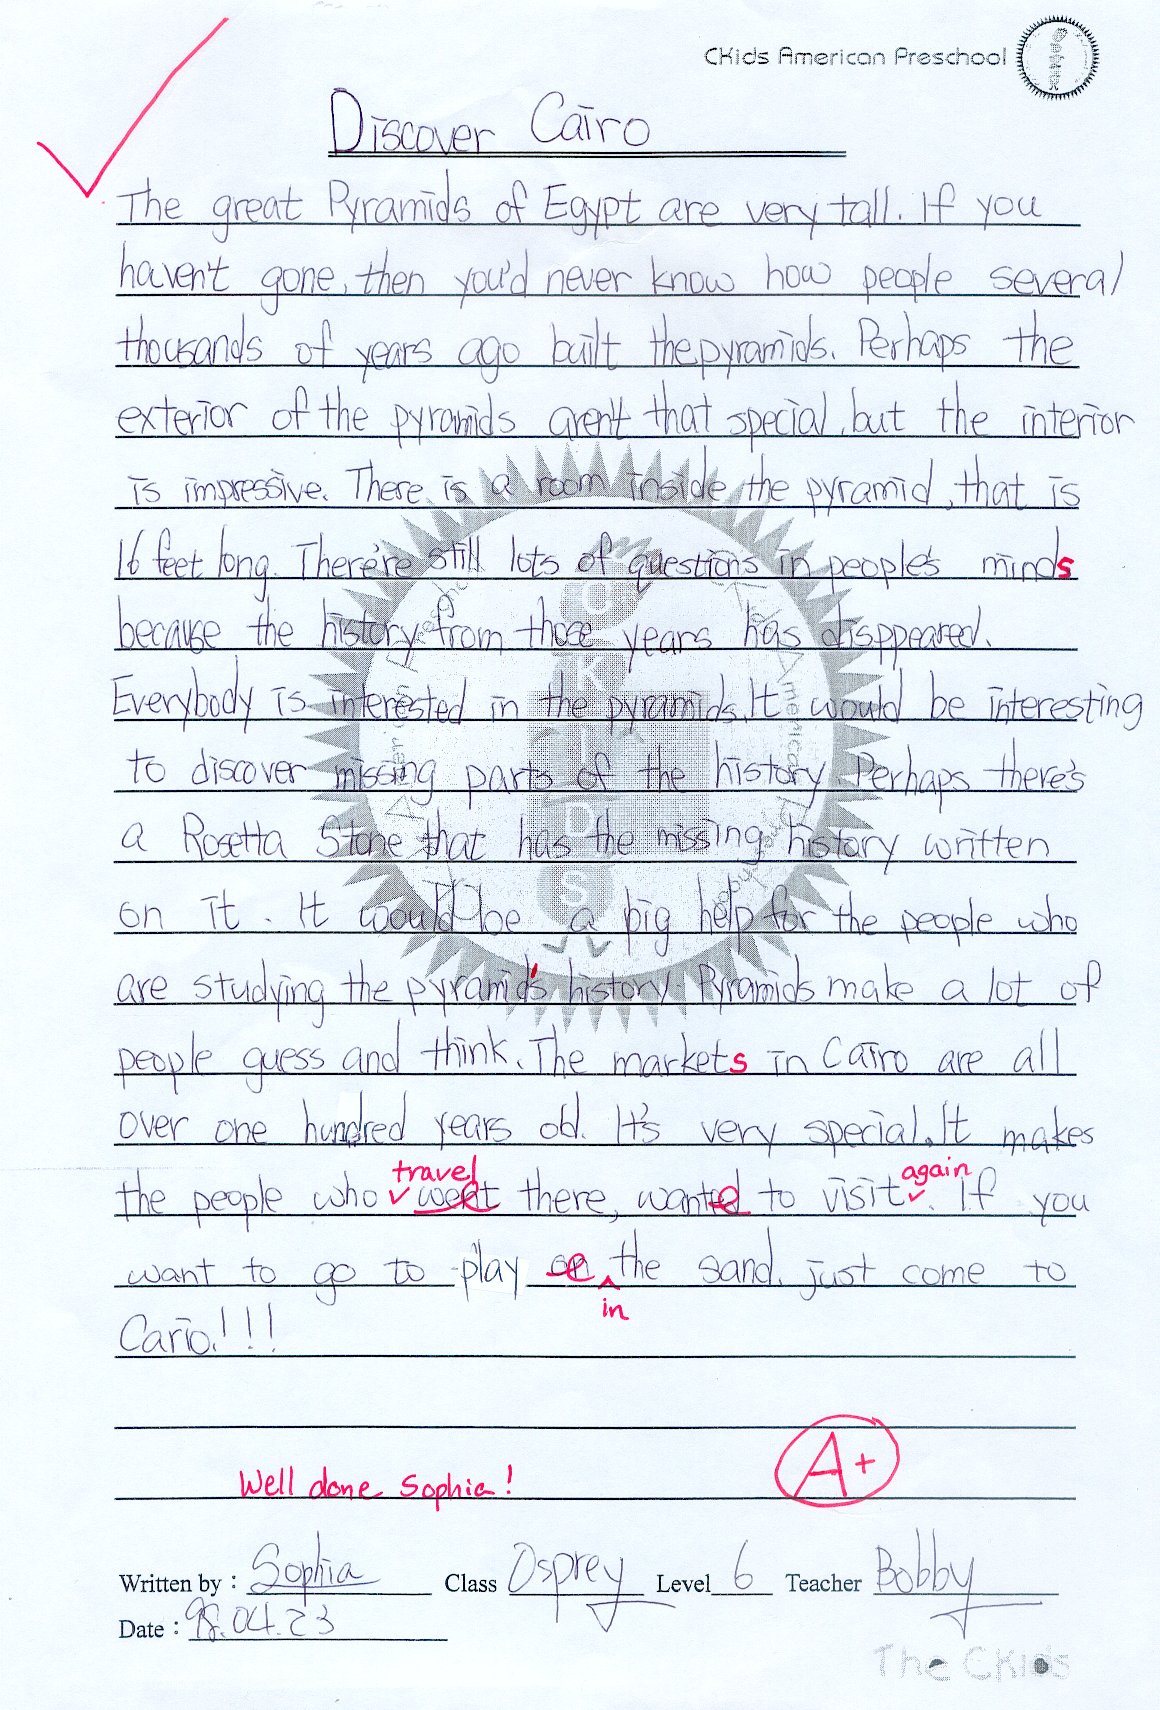 CKids American Preschool
Discover Cairo
The great Pyramids of Egypt are very tall. If you
haven't gone, then you'd never know how people several
thousands of years ago built the pyramids. Perhaps the
exterior of the pyramids aren't that special, but the interior
is impressive. There is a room inside the pyramid, that is
16 feet long. There're still lots of questions in people's minds
because the history from those years has disppeared.
Everybody is interested in the pyramids. It would be interesting
to discover missing parts of the history. Perhaps there's
a Rosetta Stone that has the missing history written
on it. It would be a big help for the people who
are studying the pyramid's history. Pyramids make a lot of
people guess and think. The markets in Cairo are all
over one hundred years old. It's very special. It makes
travel again
the people who went there, wanted to visit. If you
want to go to play on the sand, just come to
in
Cario.!!!
A+
Well done Sophia!
Written by : Sophia Class Osprey Level 6 Teacher Bobby
Date : 98.04.23
The CKids